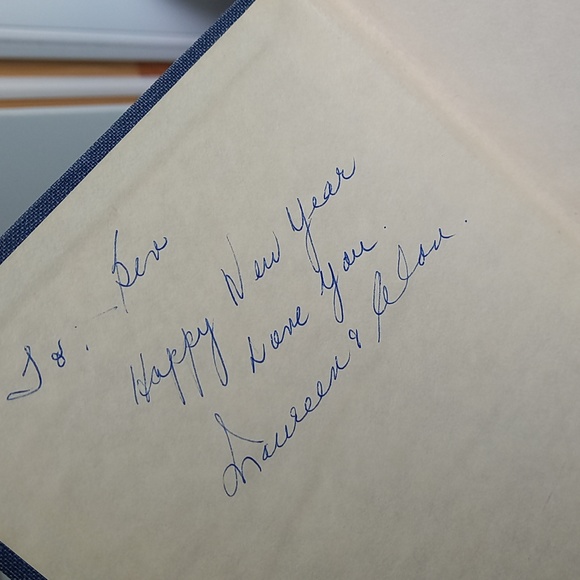 To: - Bev
Happy New Year
Love You.
Maureen & Alan.